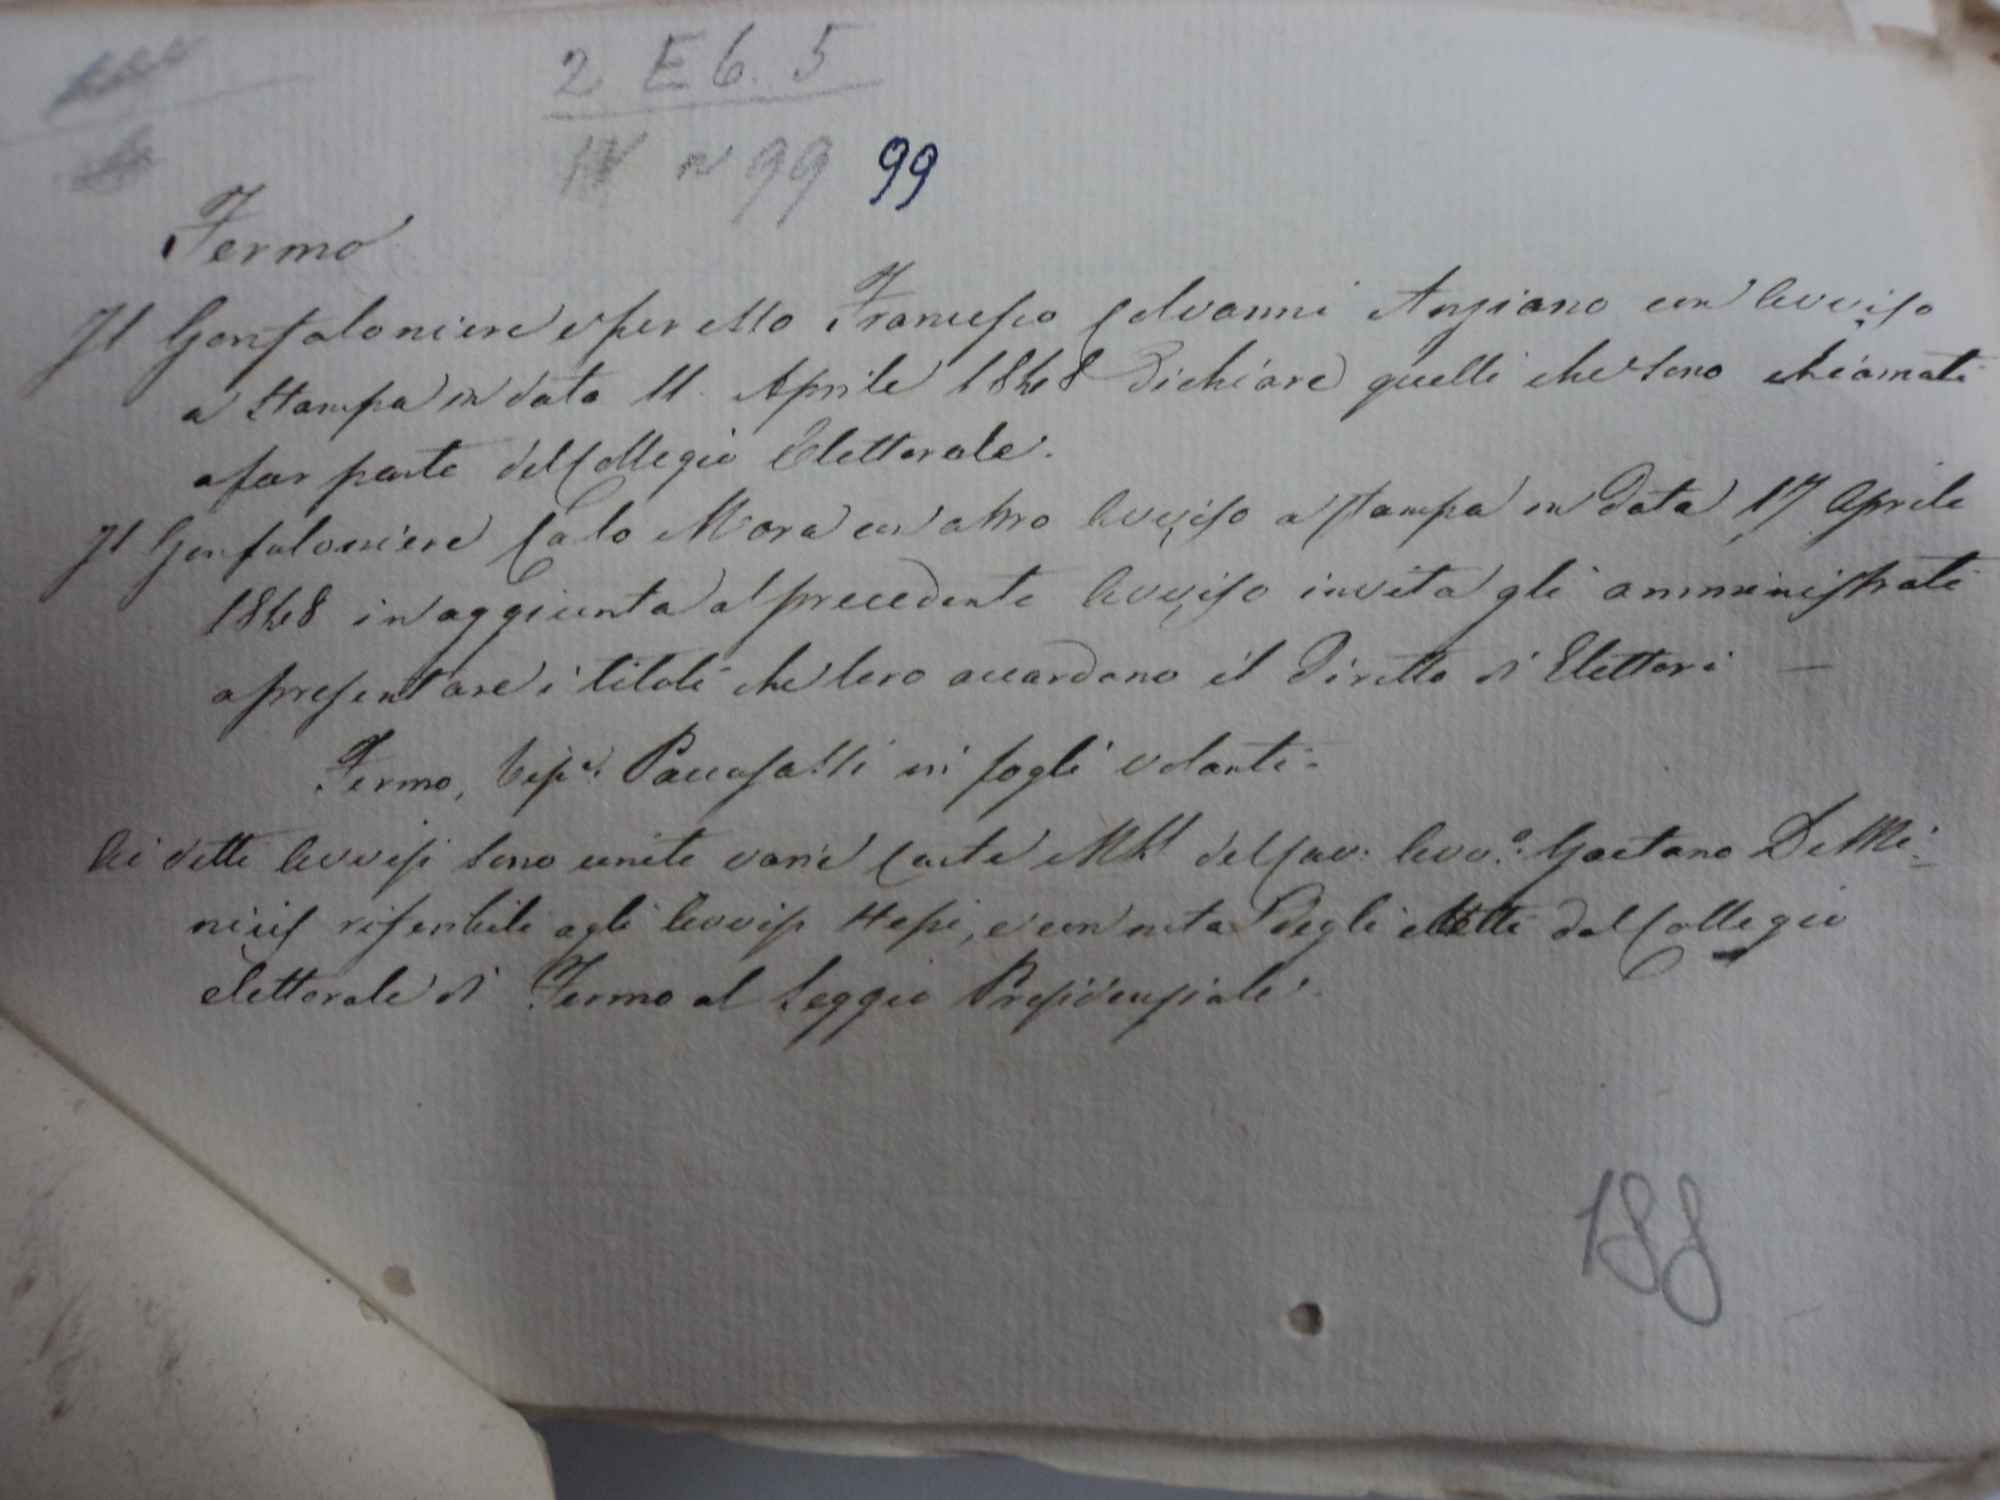 2 E 6. 5
IV n 99 99
Fermo
Il Gonfaloniere e per esso Francesco Salvanni Anziano con Avviso
a stampa in data 11. Aprile 1848 dichiara quelli che sono chiamati
a far parte del Collegio Elettorale.
Il Gonfaloniere Carlo Mora con altro Avviso a stampa in data 17 Aprile
1848 in aggiunta al precedente Avviso invita gli amministrati
a presentare i titoli che loro accordano il diritto di Elettori —
Fermo, Tip. Paccasassi in fogli volanti.
Ai detti Avvisi sono unite varie Carte Mss. del Cav: Avv.o Gaetano De Mi-
nicis riferibili agli Avvisi stessi, e con nota degli eletti dal Collegio
elettorale di Fermo al Seggio Presidenziale.
188